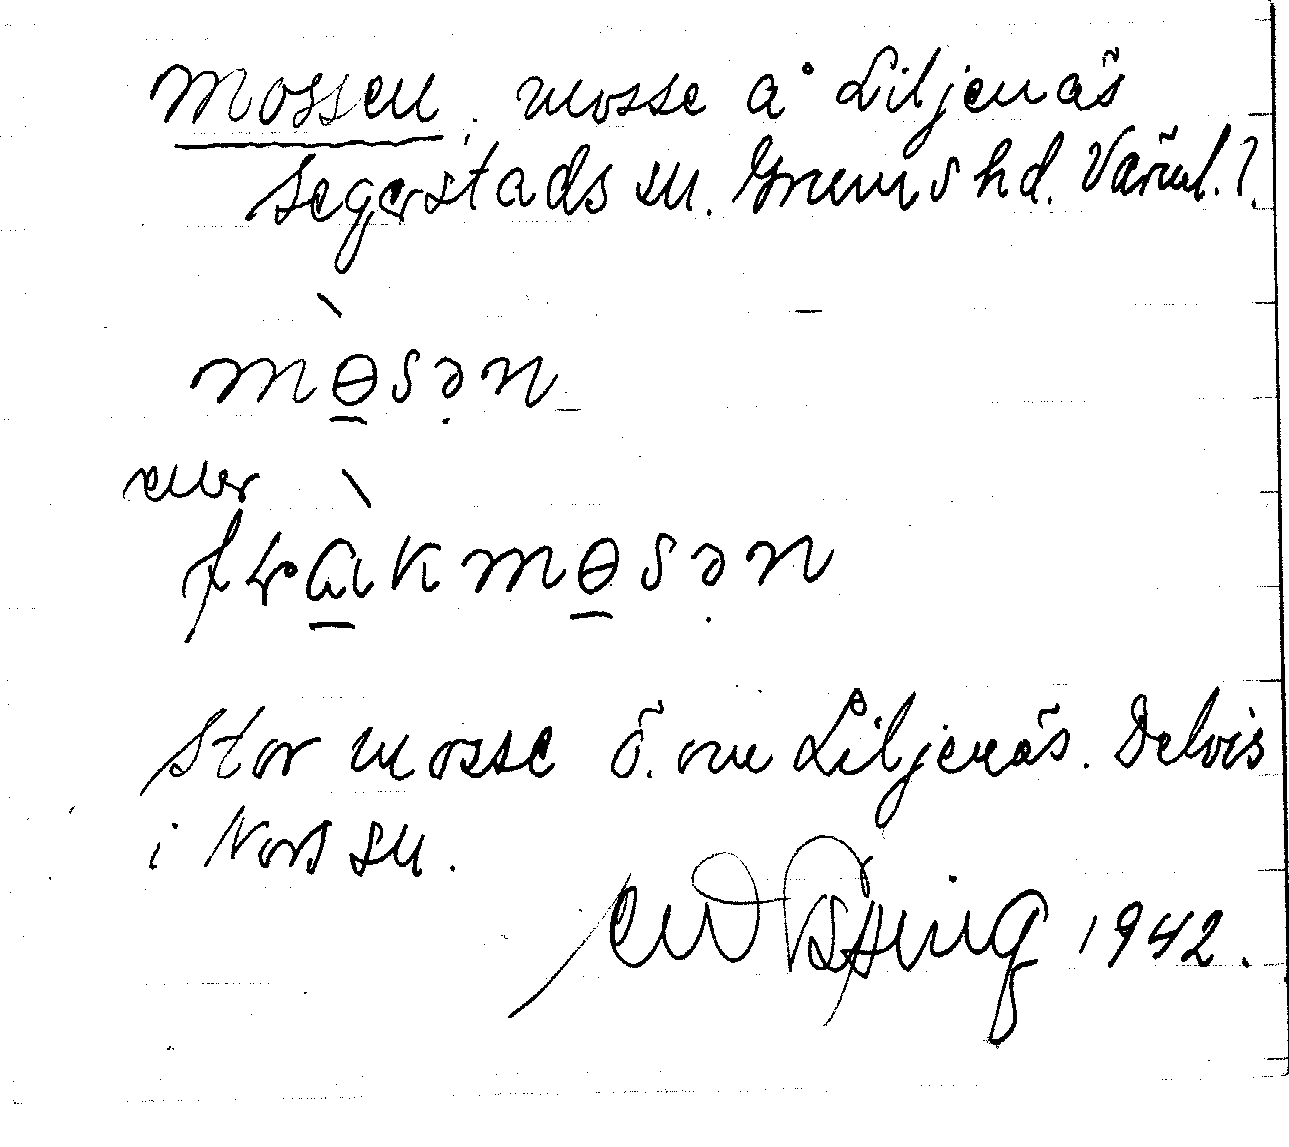 Mossen, mosse å Liljenäs
Segerstads sn. Grums hd. Värml. l.
mɵ̀sən
eller
frằkmɵsən
Stor mosse ö. om Liljenäs. Delvis
i Nors sn.
1942.